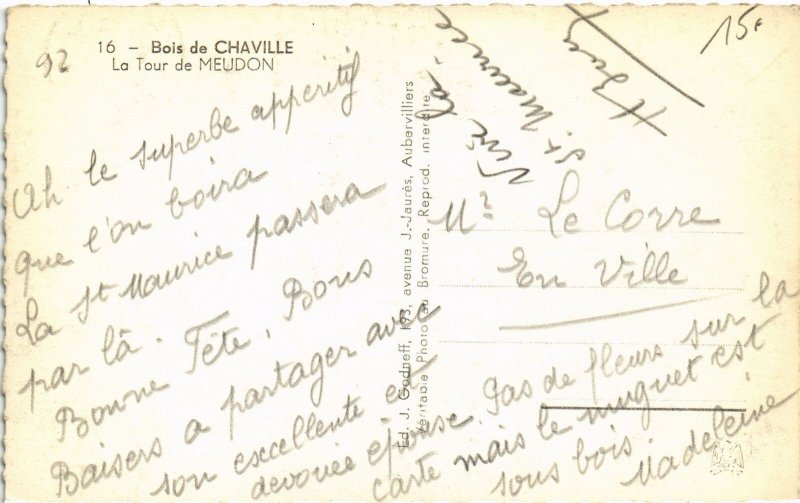 92
16 – Bois de CHAVILLE
La Tour de MEUDON
15F
Ah le superbe apperitif
que l'on boira
La St Maurice passera
par là. Bons
Bonne Fête.
Baisers a partager avec
son excellente et
devouée epouse. Pas de fleurs sur la
carte mais le muguet est
sous bois.
Madeleine
Ed. J. Godneff, 193, avenue J.-Jaurès, Aubervilliers
Véritable Photo au Bromure. Reprod. interdite
Vive la
St Maurice
Mr Le Corre
En Ville